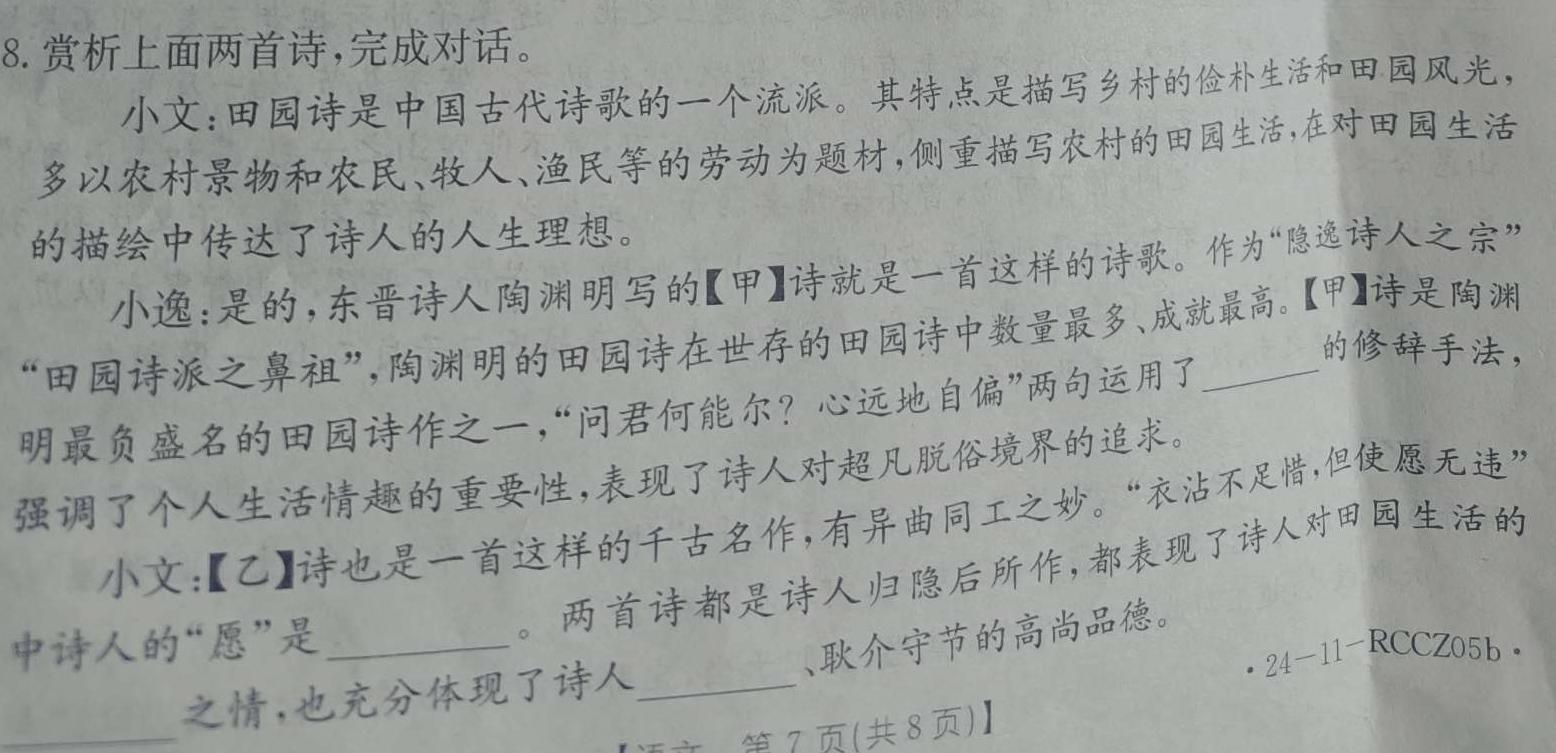 8. 赏析上面两首诗,完成对话。
小文:田园诗是中国古代诗歌的一个流派。其特点是描写乡村的俭朴生活和田园风光,
多以农村景物和农民、牧人、渔民等的劳动为题材,侧重描写农村的田园生活,在对田园生活
的描绘中传达了诗人的人生理想。
小逸:是的,东晋诗人陶渊明写的【甲】诗就是一首这样的诗歌。作为“隐逸诗人之宗”
“田园诗派之鼻祖”,陶渊明的田园诗在世存的田园诗中数量最多、成就最高。【甲】诗是陶渊
明最负盛名的田园诗作之一,“问君何能尔?心远地自偏”两句运用了______的修辞手法,
强调了个人生活情趣的重要性,表现了诗人对超凡脱俗境界的追求。
小文:【乙】诗也是一首这样的千古名作,有异曲同工之妙。“衣沾不足惜,但使愿无违”
中诗人的“愿”是________。两首诗都是诗人归隐后所作,都表现了诗人对田园生活的
________之情,也充分体现了诗人________、耿介守节的高尚品德。
·24-11-RCCZ05b·
【语文 第7页(共8页)】